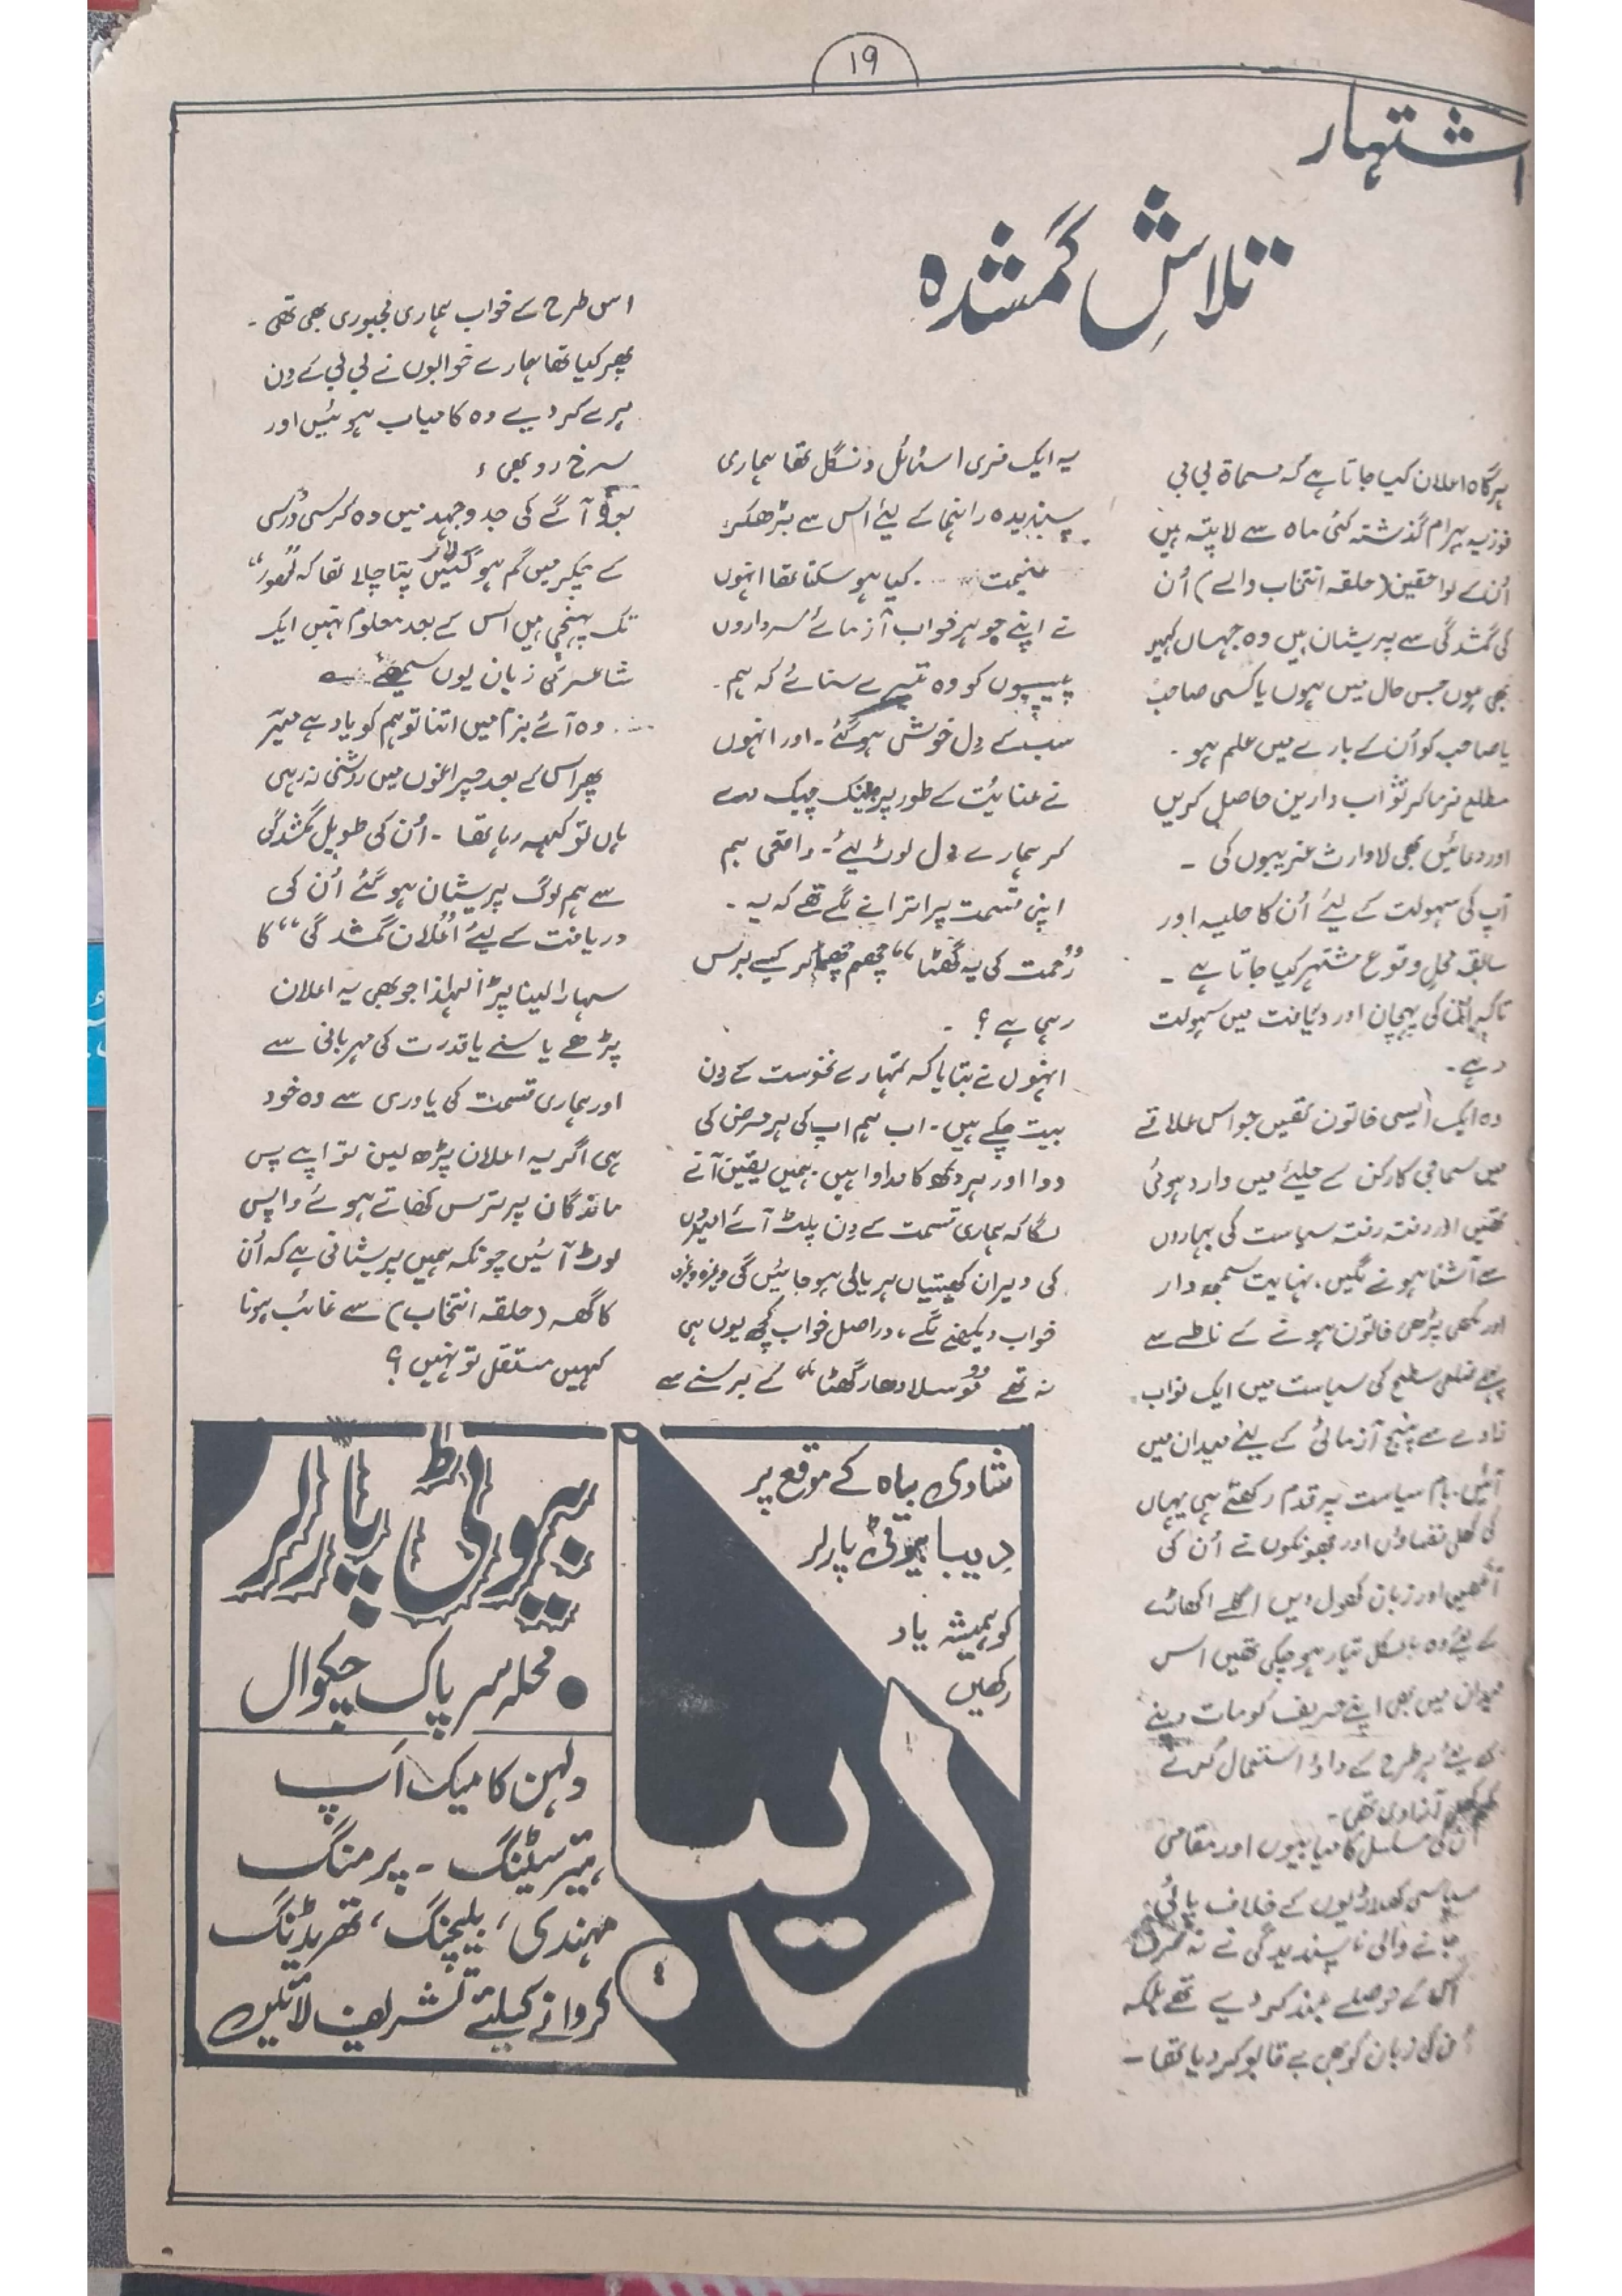 ۱۹
اشتہار
تلاشِ گمشدہ
ہرگاہ اعلان کیا جاتا ہے کہ مسماۃ بی بی
فوزیہ بہرام گذشتہ کئی ماہ سے لاپتہ ہیں
اُن کے لواحقین (حلقہ انتخاب والے) اُن
کی گمشدگی سے پریشان ہیں وہ جہاں کہیں
بھی ہوں جس حال میں ہوں یا کسی صاحب
یا صاحبہ کو اُن کے بارے میں علم ہو۔
مطلع فرما کر ثواب دارین حاصل کریں
اور دعائیں بھی لاوارث غریبوں کی ۔
آپ کی سہولت کے لیئے اُن کا حلیہ اور
سابقہ محلِ وقوع مشتہر کیا جاتا ہے ۔
تاکہ اُن کی پہچان اور دریافت میں سہولت
رہے۔
وہ ایک ایسی خاتون تھیں جو اس علاقے
میں سماجی کارکن کے حلیئے میں وارد ہوئی
تھیں اور رفتہ رفتہ سیاست کی بہاروں
سے آشنا ہونے لگیں، نہایت سمجھ دار
اور لکھی پڑھی خاتون ہونے کے ناطے سے
پہلے ضلعی سطح کی سیاست میں ایک نواب
زادے سے پنجہ آزمائی کے لیئے میدان میں
آئیں، بام سیاست پر قدم رکھتے ہی یہاں
کی کھلی فضاؤں اور جھونکوں نے اُن کی
آنکھیں اور زبان کھول دیں اگلے اکھاڑے
کے لیئے وہ بالکل تیار ہو چکی تھیں اس
میدان میں بھی اپنے حریف کو مات دینے
کے لیئے ہر طرح کے داؤ استعمال کرنے
کی آزادی تھی۔
اُن کی مسلسل کامیابیوں اور مقامی
سیاسی کھلاڑیوں کے خلاف پائی
جانے والی ناپسندیدگی نے نہ صرف
اُن کے حوصلے بلند کر دیے تھے بلکہ
اُن کی زبان کو بھی بے قابو کر دیا تھا۔
یہ ایک فری اسٹائل دنگل تھا ہماری
پسندیدہ راہنما کے لیئے اس سے بڑھکر
غنیمت ... کیا ہو سکتا تھا انہوں
نے اپنے جوہر خوب آزمائے سرداروں
پیپیوں کو وہ تبرے سنائے کہ ہم۔
سب کے دل خوش ہو گئے۔ اور انہوں
نے عنایت کے طور پر بینک چیک دے
کر ہمارے دل لوٹ لیئے۔ واقعی ہم
اپنی قسمت پر اترانے لگے تھے کہ یہ۔
"رحمت کی یہ گھٹا" چھم چھما کر کیسے برس
رہی ہے؟ ۔
انہوں نے بتایا کہ تمہارے نحوست کے دن
بیت چکے ہیں۔ اب ہم اپ کی ہر مرض کی
دوا اور ہر دکھ کا مداوا ہیں۔ ہمیں یقین آنے
لگا کہ ہماری قسمت کے دن پلٹ آئے امیدوں
کی ویران کھیتیاں ہریالی ہو جائیں گی وغیرہ وغیرہ
خواب دیکھنے لگے، دراصل خواب کچھ یوں ہی
نہ تھے "موسلا دھار گھٹا" کے برسنے سے
اس طرح کے خواب ہماری مجبوری بھی تھی۔
پھر کیا تھا ہمارے خوابوں نے بی بی کے دن
ہرے کر دیے وہ کامیاب ہوئیں اور
سرخ رو بھی ،
آگے کی جدوجہد میں وہ کرسی ورسی
کے چکر میں گم ہو گئیں پتا چلا تھا کہ "لاہور"
تک پہنچی ہیں اس کے بعد معلوم نہیں ایک
شاعر کی زبان یوں سمجھئے ؎
وہ آئے بزم میں اتنا تو ہم کو یاد ہے میرؔ
پھر اس کے بعد چراغوں میں روشنی نہ رہی
ہاں تو کہہ رہا تھا ۔ اُن کی طویل گمشدگی
سے ہم لوگ پریشان ہو گئے اُن کی
دریافت کے لیئے "اعلان گمشدگی" کا
سہارا لینا پڑا لہذا جو بھی یہ اعلان
پڑھے یا سنے یا قدرت کی مہربانی سے
اور ہماری قسمت کی یاوری سے وہ خود
ہی اگر یہ اعلان پڑھ لیں تو اپنے پس
ماندگان پر ترس کھاتے ہوئے واپس
لوٹ آئیں چونکہ ہمیں پریشانی ہے کہ اُن
کا گھر (حلقہ انتخاب) سے غائب ہونا
کہیں مستقل تو نہیں؟
شادی بیاہ کے موقع پر
دیبا بیوٹی پارلر
کو ہمیشہ یاد
رکھیں
دیبا
بیوٹی پارلر
● محلہ سرپاک چکوال
دلہن کا میک اَپ
ہیر سٹینگ ۔ پرمنگ
مہندی، بلیچنگ، تھریڈنگ
کروانے کیلئے تشریف لائیں